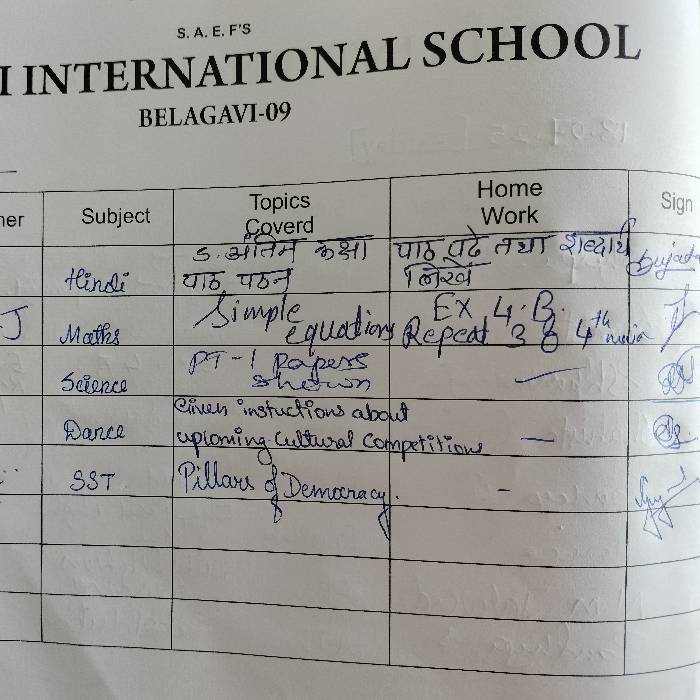 S. A. E. F'S
I INTERNATIONAL SCHOOL
BELAGAVI-09
ner Subject Topics Coverd Home Work Sign
Hindi 5. अंतिम कक्षा पाठ पढे तथा शब्दार्थ
पाठ पठन लिखें
J Maths Simple Ex 4.B.
equations Repeat 3 & 4th
Science PT-1 Papers
shown
Dance Given instuctions about
upcoming Cultural Competitions —
SST Pillars of Democracy. -